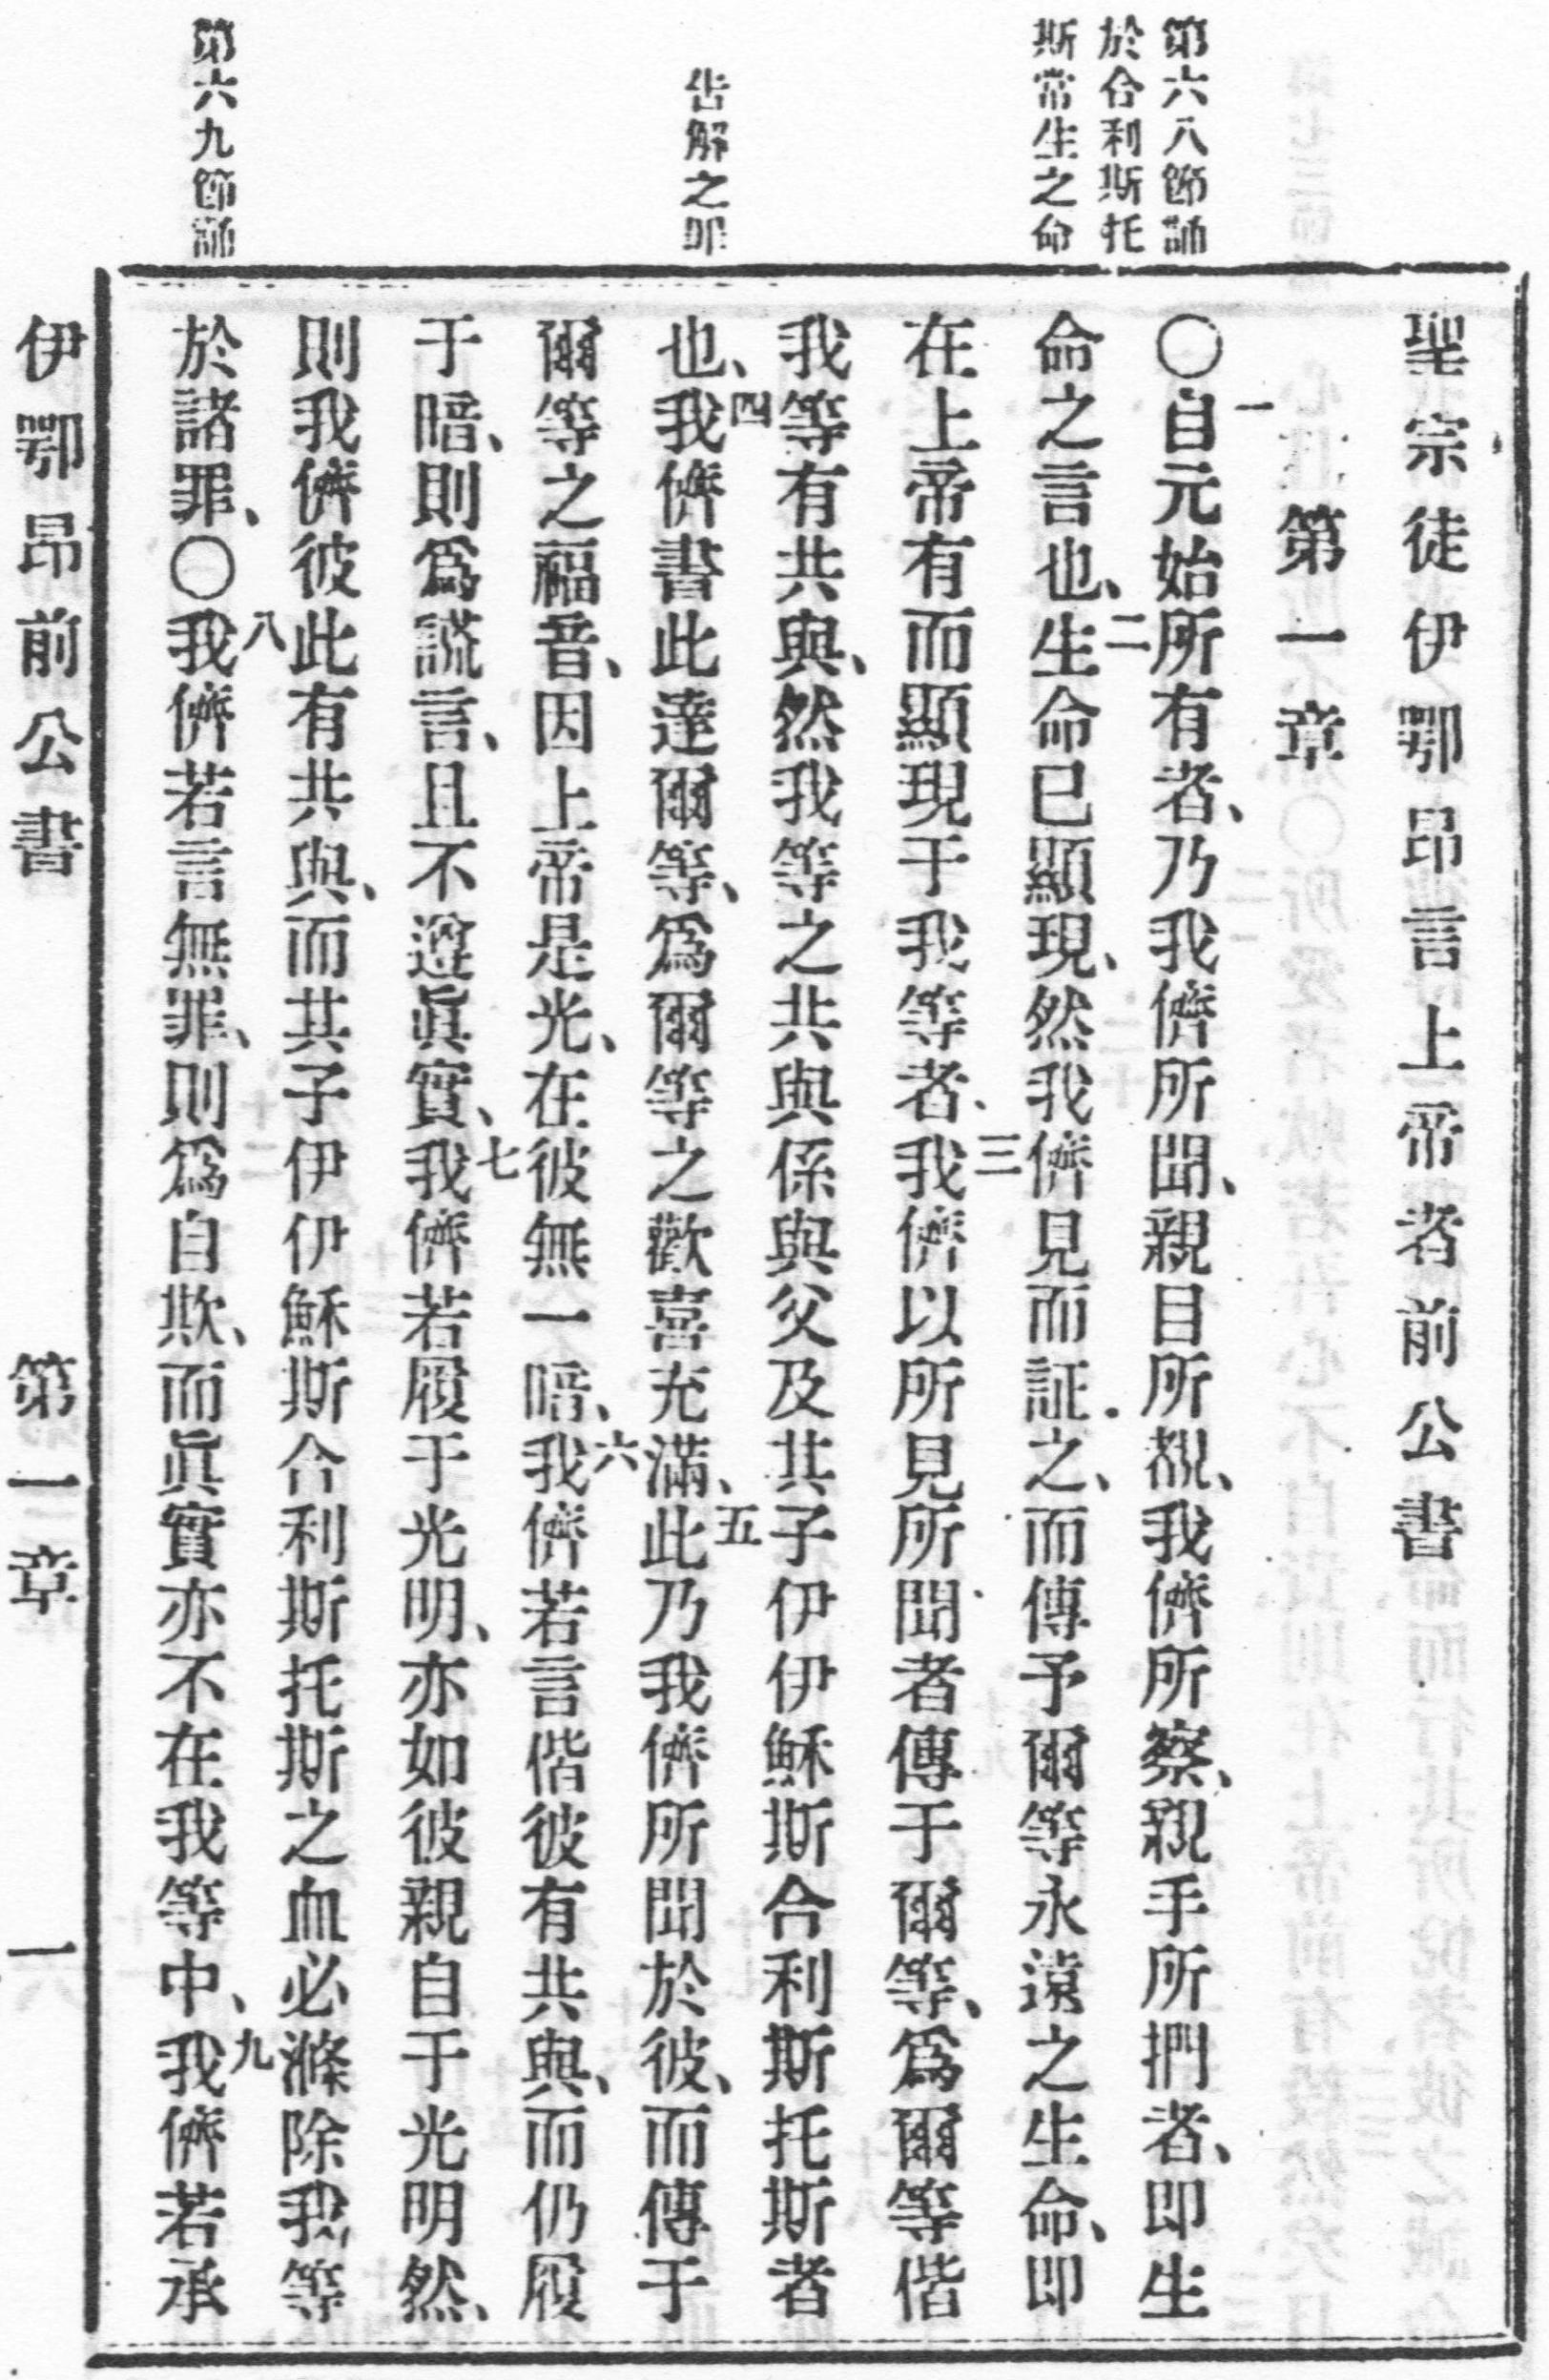 第六八節誦
於合利斯托
斯常生之命
告解之㫔
第六九節誦
聖宗徒伊鄂昂言上帝者前公書
第一章
〇一自元始所有者、乃我儕所聞、親目所覩、我儕所察、親手所捫者、卽生
命之言也、二生命已顯現、然我儕見而証之、而傳予爾等永遠之生命、卽
在上帝有而顯現于我等者、三我儕以所見所聞者傳于爾等、爲爾等偕
我等有共與、然我等之共與係與父及其子伊伊穌斯合利斯托斯者
也、四我儕書此達爾等、爲爾等之歡喜充滿、五此乃我儕所聞於彼、而傳于
爾等之福音、因上帝是光、在彼無一暗、六我儕若言偕彼有共與、而仍履
于暗、則爲謊言、且不遵眞實、七我儕若履于光明、亦如彼親自于光明然、
則我儕彼此有共與、而其子伊伊穌斯合利斯托斯之血必滌除我等
於諸罪、〇八我儕若言無罪、則爲自欺、而眞實亦不在我等中、九我儕若承
伊鄂昂前公書 第一章 一